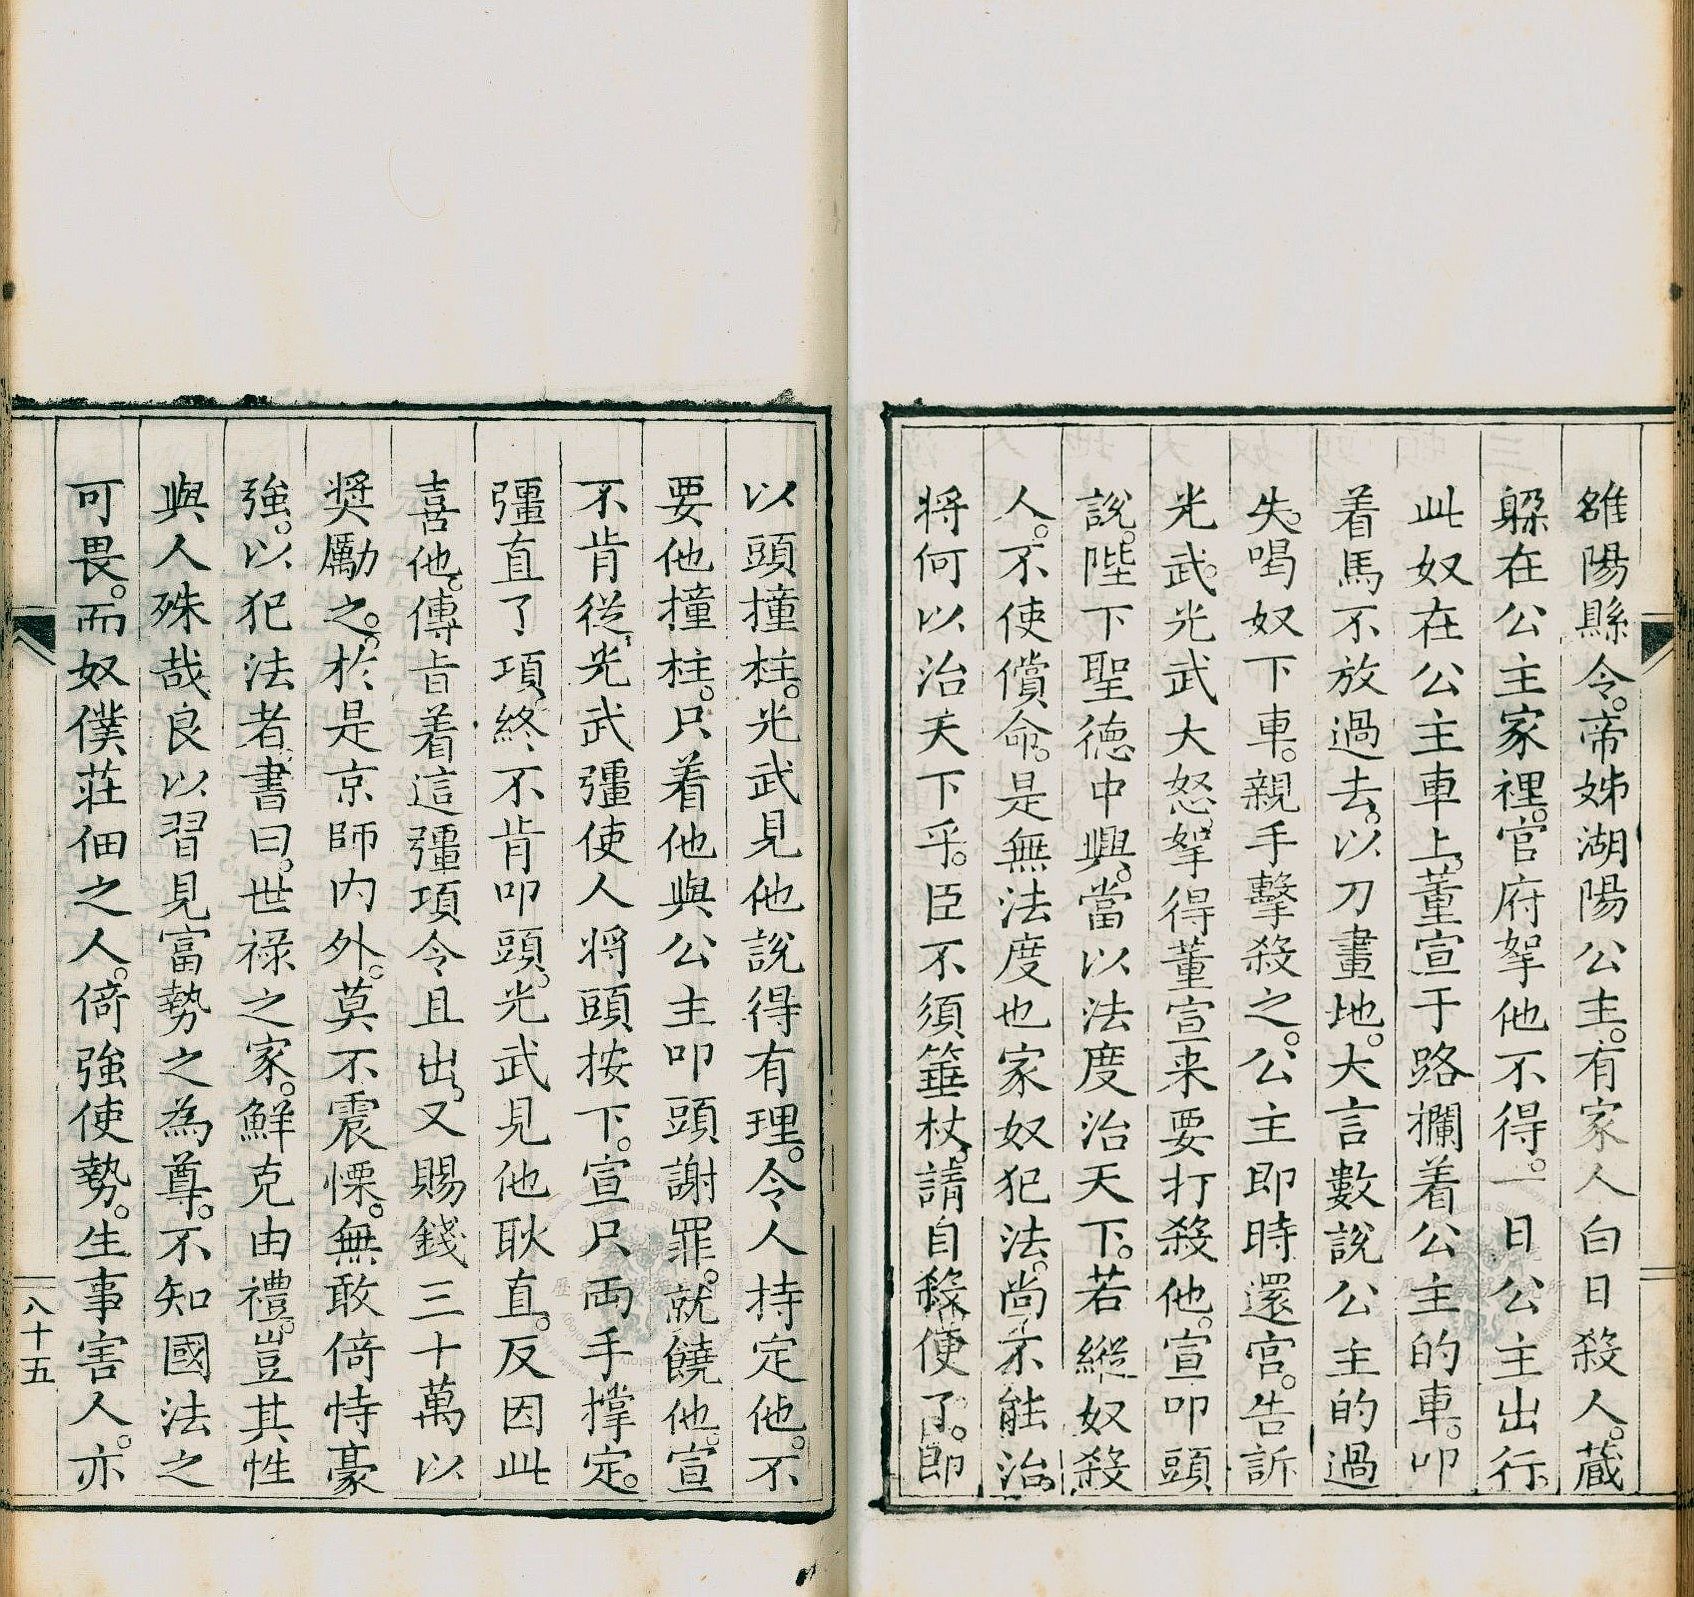 雒陽縣令。帝姊湖陽公主。有家人白日殺人。蔵
躱在公主家裡。官府拏他不得。一日公主出行。
此奴在公主車上。董宣于路攔着公主的車。叩
着馬不放過去。以刀畫地。大言數說公主的過
失。喝奴下車。親手擊殺之。公主即時還宮。告訴
光武。光武大怒。拏得董宣来要打殺他。宣叩頭
說。陛下聖德中興。當以法度治天下。若縱奴殺
人。不使償命。是無法度也家奴犯法。尚不能治。
将何以治天下乎。臣不須箠杖。請自殺便了。即
以頭撞柱。光武見他說得有理。令人持定他。不
要他撞柱。只着他與公主叩頭謝罪。就饒他。宣
不肯從。光武彊使人將頭按下。宣只両手撑定。
彊直了項。終不肯叩頭。光武見他耿直。反因此
喜他。傳旨着這彊項令且出。又賜錢三十萬以
奬勵之。於是京師内外。莫不震慄。無敢倚恃豪
強。以犯法者。書曰。世禄之家。鮮克由禮。豈其性
與人殊哉良以習見富勢之為尊。不知國法之
可畏。而奴僕莊佃之人。倚強使勢。生事害人。亦
八十五